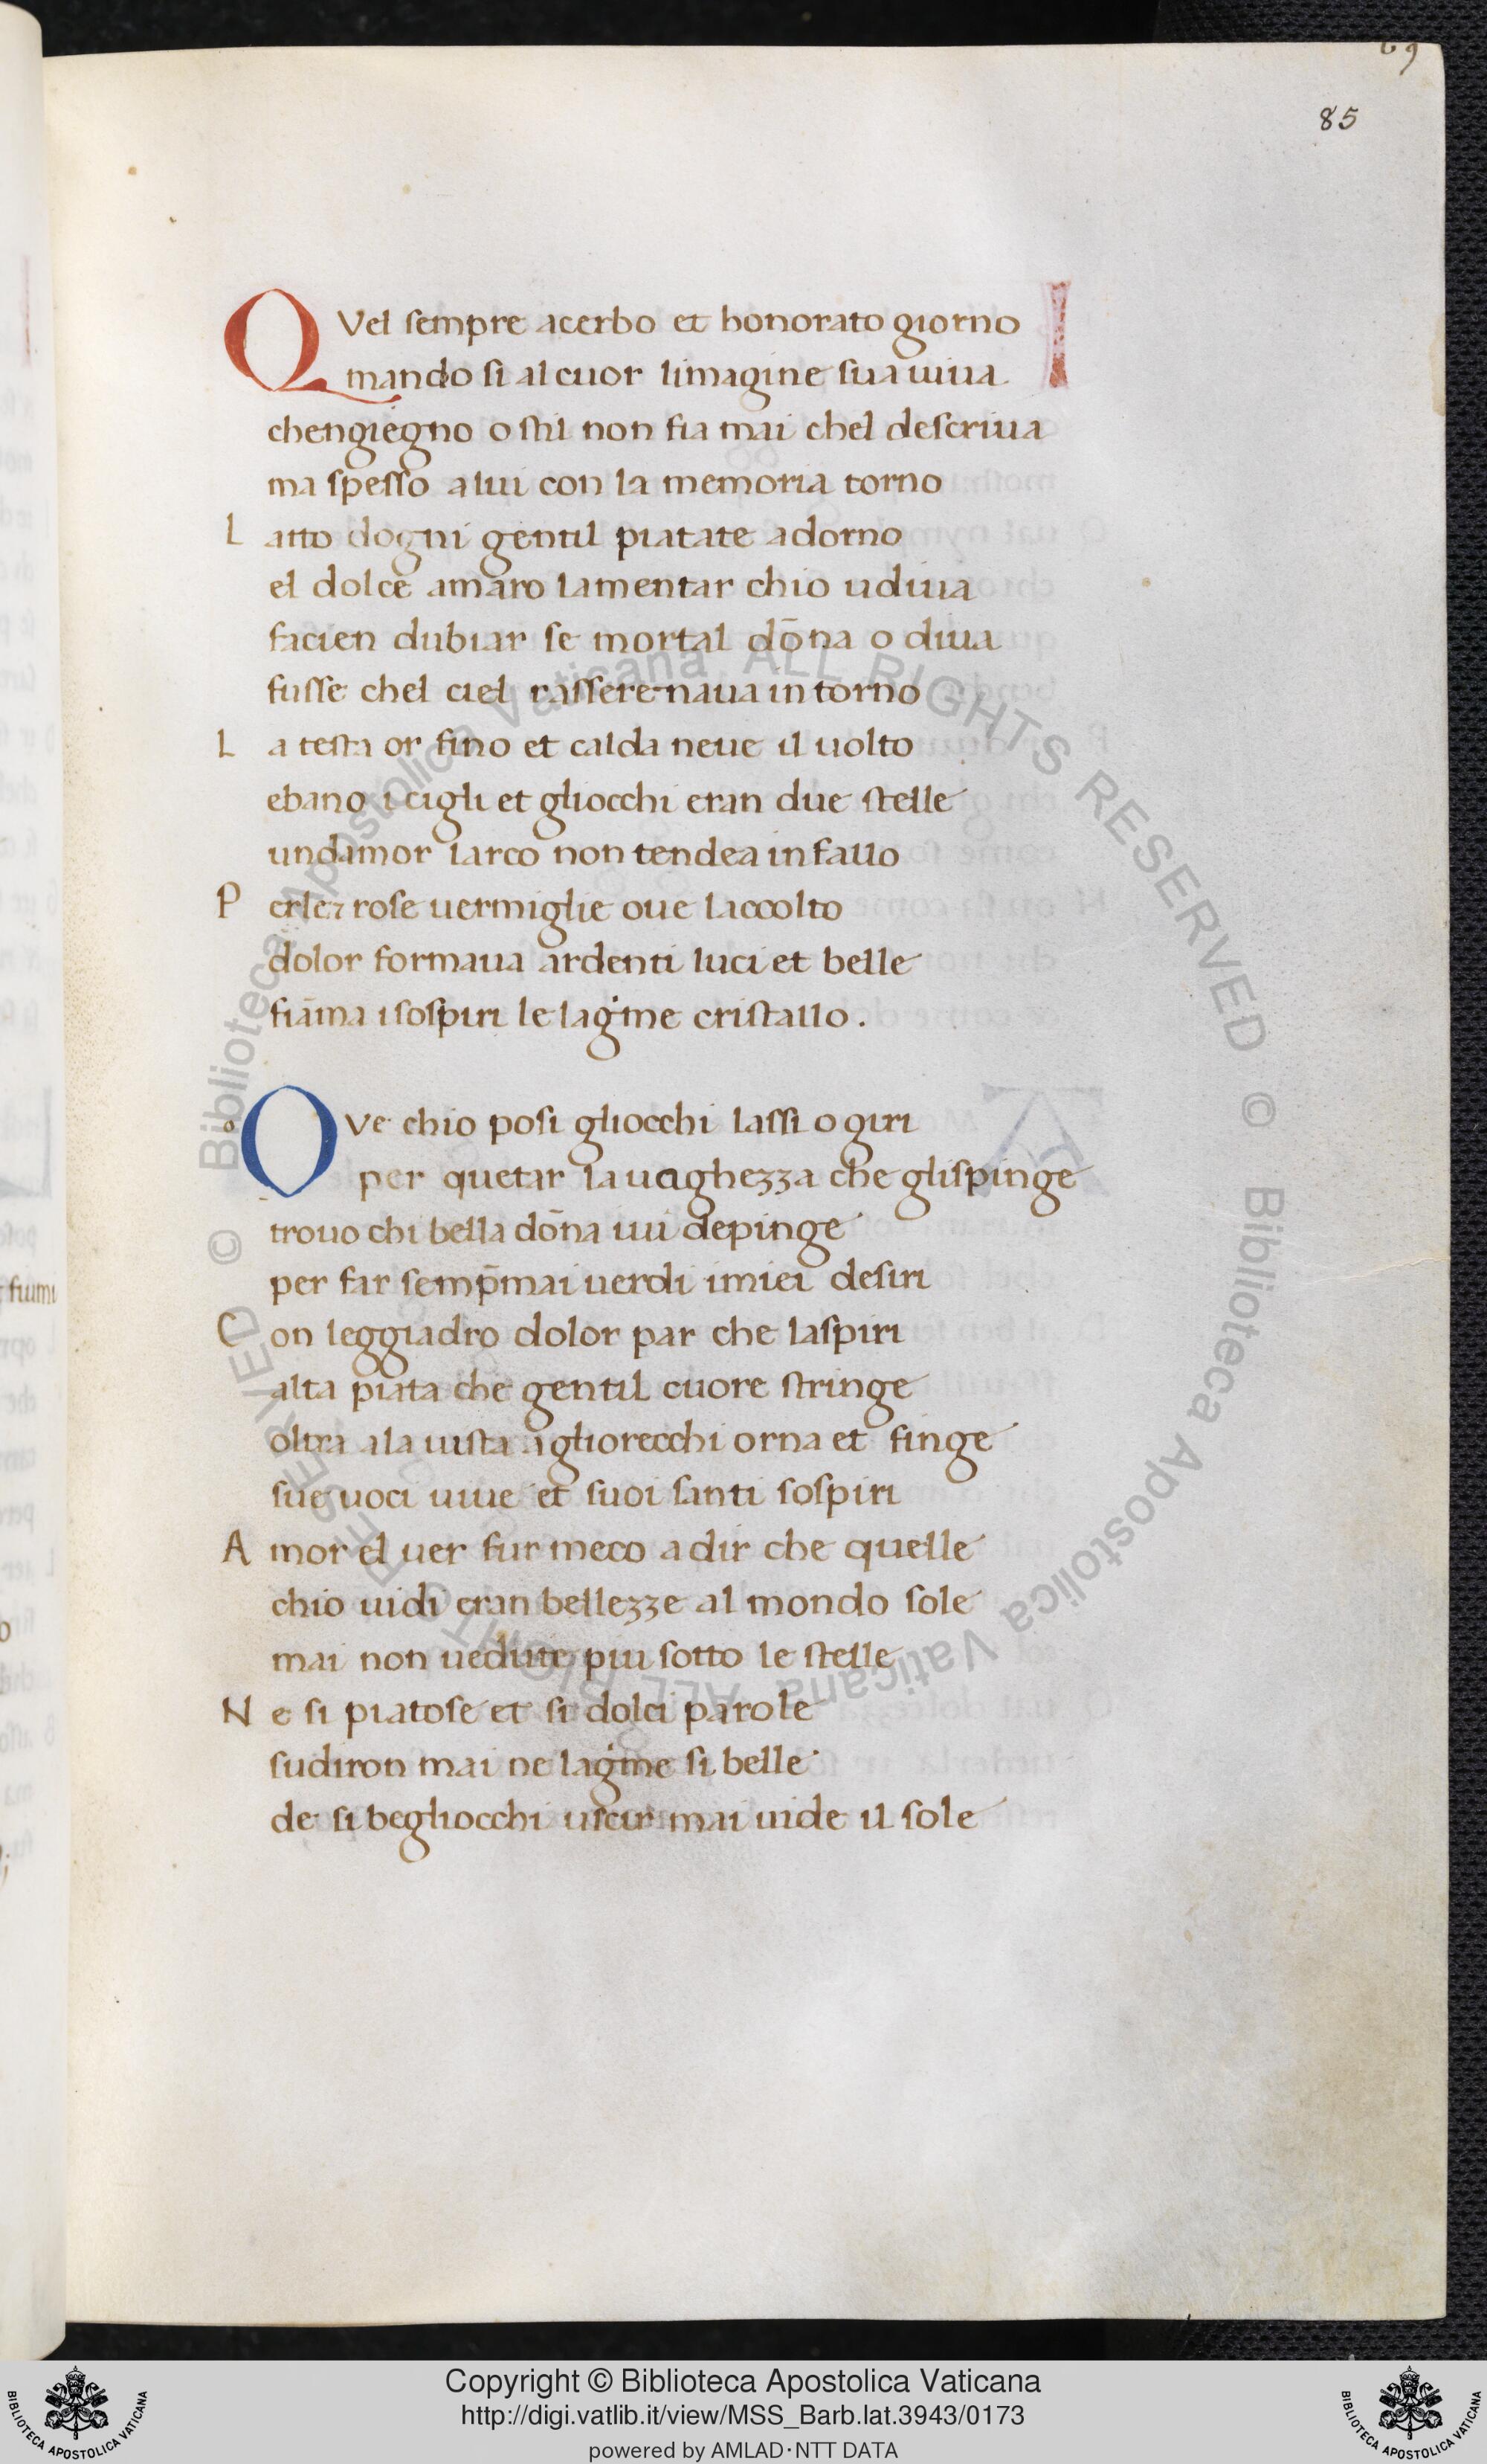 69
85
QVel sempre acerbo et honorato giorno
mando si al cuor limagine sua uiua
chengiegno o stil non fia mai chel descriua
ma spesso alui con la memoria torno
L atto dogni gentil piatate adorno
el dolce amaro lamentar chio udiua
facien dubiar se mortal dōna o diua
fusse chel ciel rasserenaua in torno
L a testa or fino et calda neue il uolto
ebano i cigli et gliocchi eran due stelle
undamor larco non tendea in fallo
P erle ⁊ rose uermiglie oue laccolto
dolor formaua ardenti luci et belle
fiāma i sospiri le laġme cristallo.
OVe chio posi gliocchi lassi o giri
per quetar la uaghezza che glispinge
trouo chi bella dōna iui depinge
per far semp̄ mai uerdi imiei desiri
C on leggiadro dolor par che laspiri
alta piata che gentil cuore stringe
oltra ala uista agliorecchi orna et finge
sue uoci uiue et suoi santi sospiri
A mor el uer fur meco adir che quelle
chio uidi eran bellezze al mondo sole
mai non uedute piu sotto le stelle
N e si piatose et si dolci parole
sudiron mai ne laġme si belle
de si begliocchi uscir mai uide il sole
Copyright © Biblioteca Apostolica Vaticana
http://digi.vatlib.it/view/MSS_Barb.lat.3943/0173
powered by AMLAD·NTT DATA